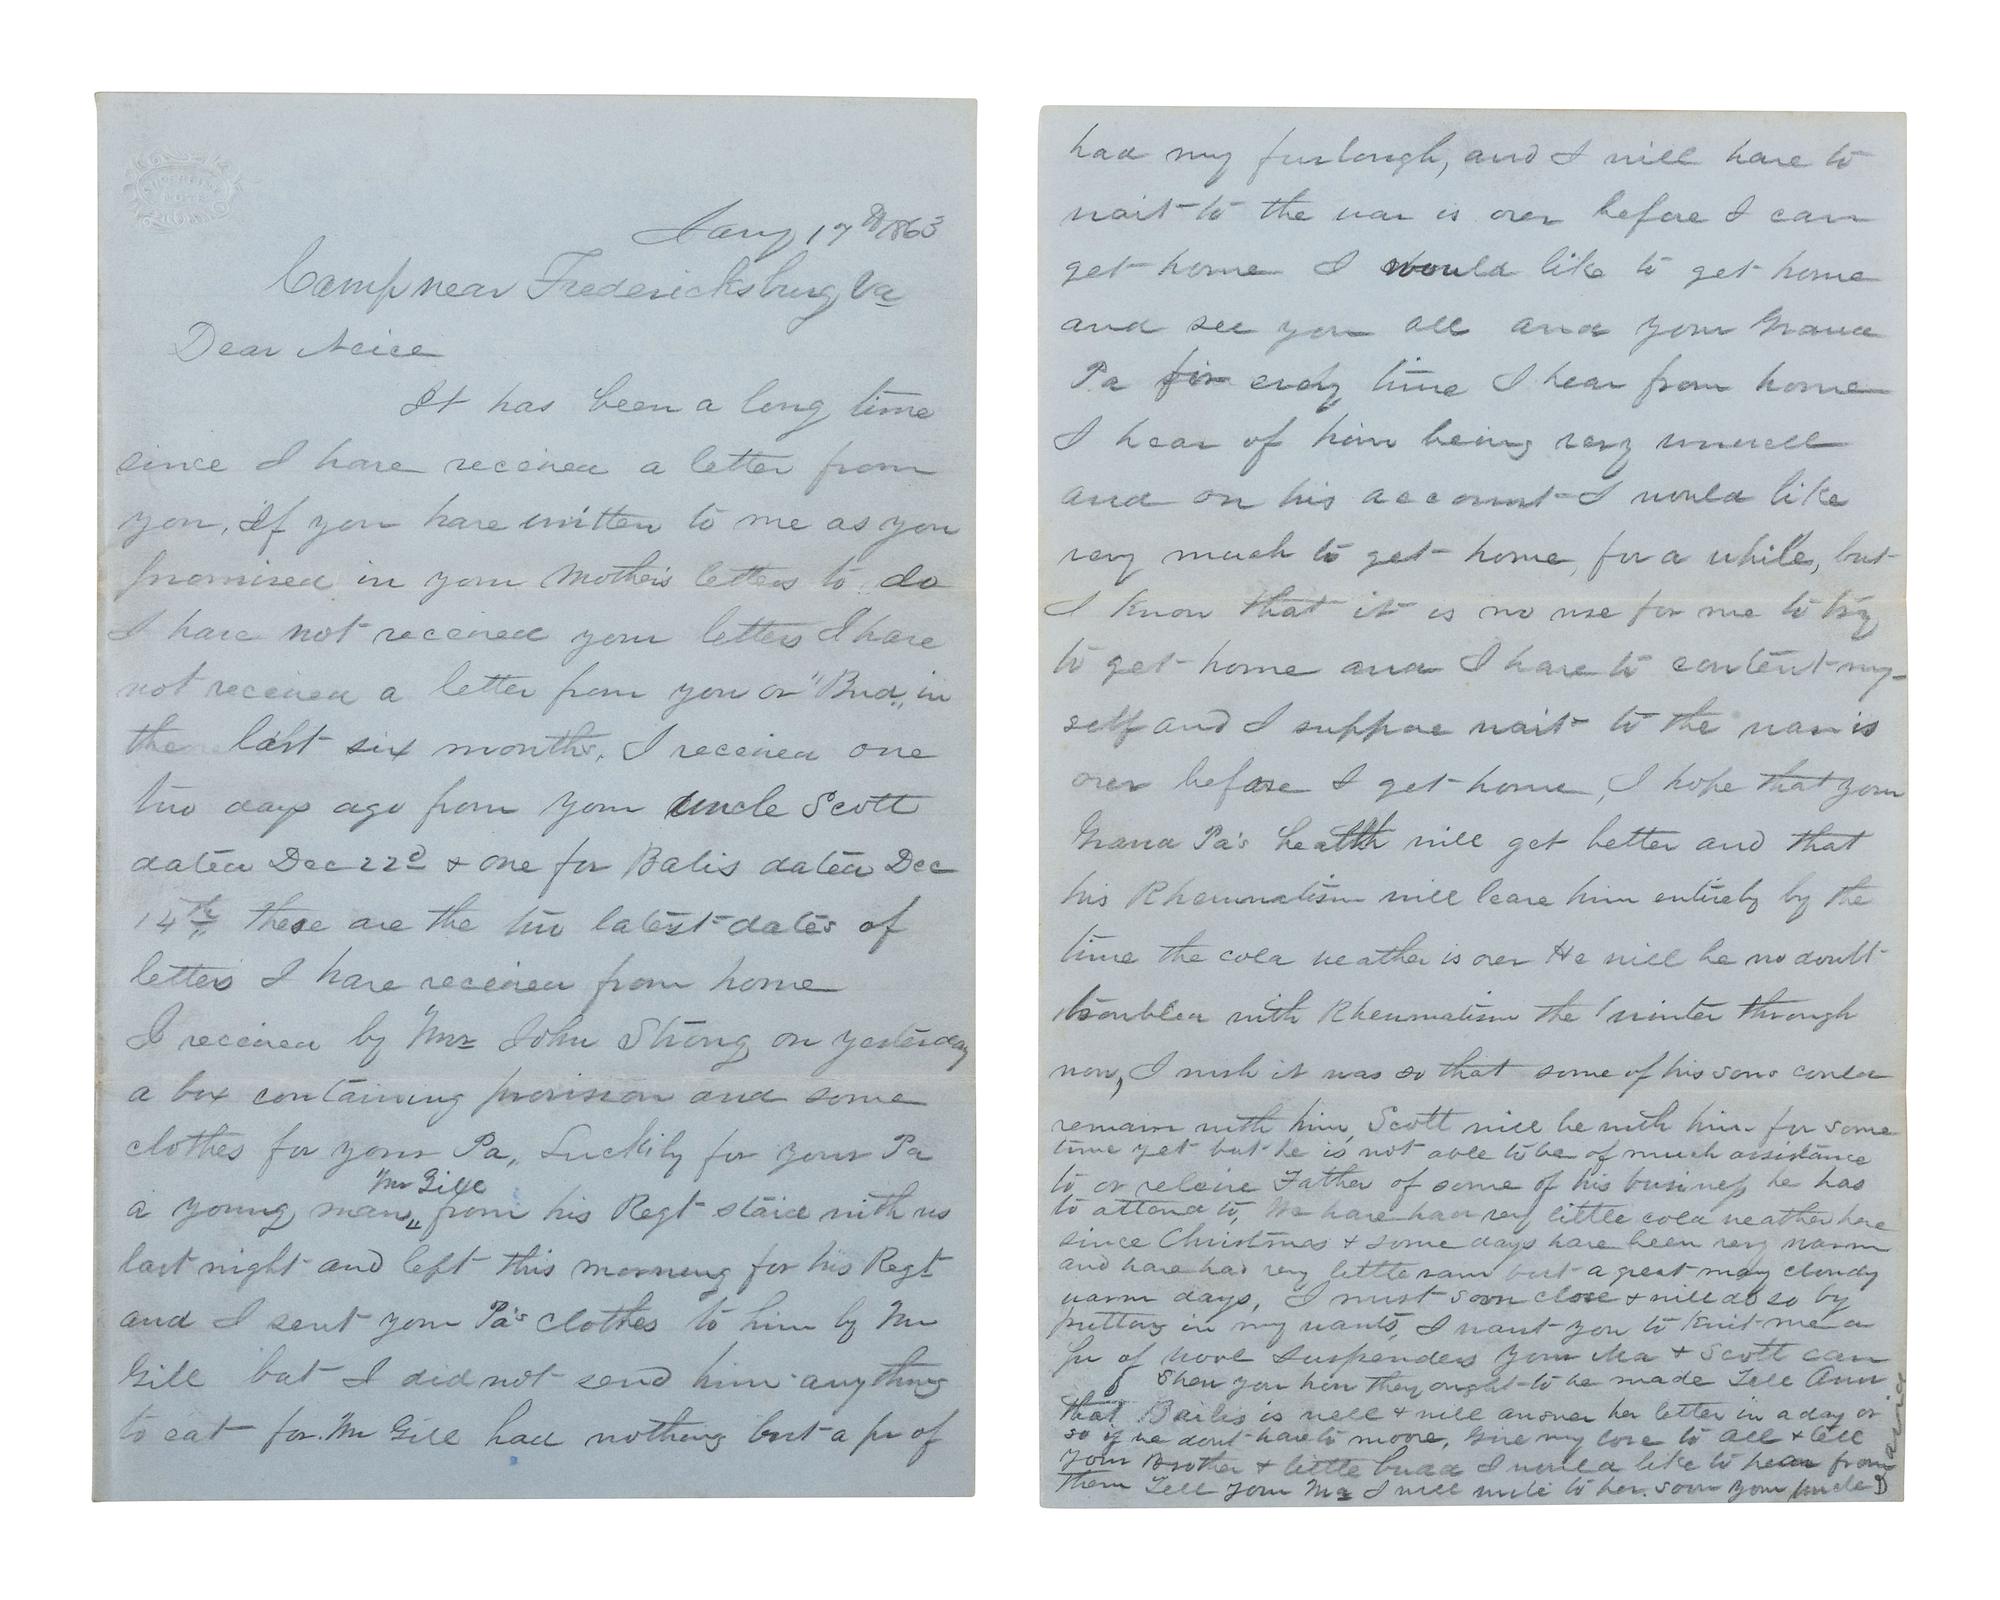 Jany 17th 1863
Camp near Fredericksburg Va
Dear Neice
It has been a long time
since I have received a letter from
you, If you have written to me as you
promised in your Mother's letters to do
I have not received your letters I have
not received a letter from you or "Bud" in
the last six months. I received one
two days ago from your uncle Scott
dated Dec 22d & one for Balis dated Dec
14th these are the two latest dates of
letters I have received from home
I received by Mr John Strong on yesterday
a box containing provision and some
clothes for your Pa, Luckily for your Pa
Mr Gill
a young man from his Regt staid with us
last night and left this morning for his Regt
and I sent your Pa's clothes to him by Mr
Gill but I did not send him anything
to eat for Mr Gill had nothing but a pr of
had my furlough, and I will have to
wait to the war is over before I can
get home I would like to get home
and see you all and your Grand
Pa for evdy time I hear from home
I hear of him being very unwell
and on his account I would like
very much to get home, for a while, but
I know that it is no use for me to try
to get home and I have to content my-
self and I suppoe wait to the war is
over before I get home, I hope that your
Grand Pa's health will get better and that
his Rheumatism will leave him entirely by the
time the cold weather is over He will be no doubt
troubled with Rheumatism the winter through
now, I wish it was so that some of his sons could
remain with him, Scott will be with him for some
time yet but he is not able to be of much assistance
to or releive Father of some of his business he has
to attend to, We have had very little cold weather here
since Christmas & some days have been very warm
and have had very little rain but a great many cloudy
warm days, I must soon close & will do so by
putting in my wants, I want you to Knit me a
pr of wool suspenders your Ma & Scott can
Shew you how they ought to be made Tell Ann
that Bailis is well & will answer her letter in a day or
so if we dont have to move, Give my love to all & tell
your Brother & little budd I would like to hear from
them Tell your Ma I will write to her soon your uncle